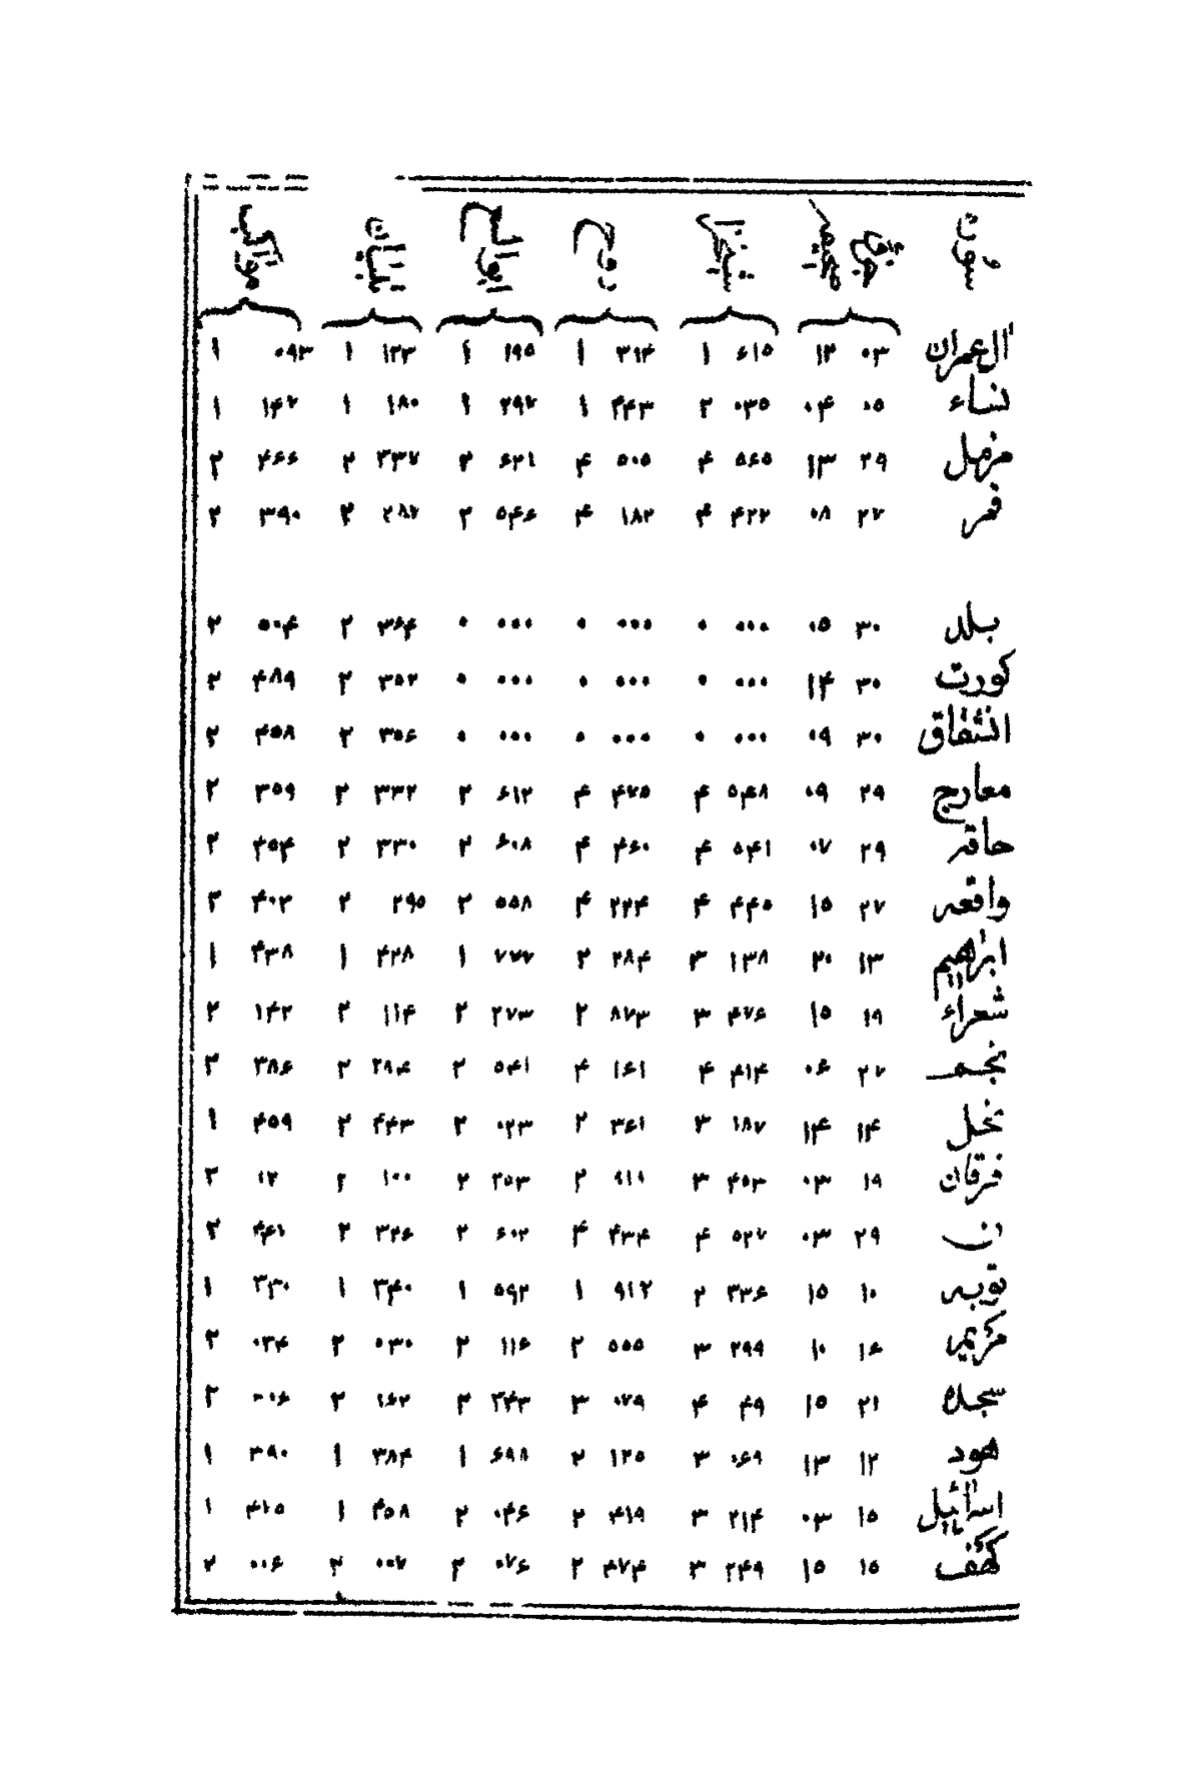 آل عمران ۰۳ ۱۲ ۶۱۵ ۱ ۳۱۴ ۱ ۱۹۵ ۱ ۱۲۳ ۱ ۰۹۳ ۱
نساء ۰۵ ۰۴ ۰۳۵ ۲ ۴۴۳ ۱ ۲۹۷ ۱ ۱۸۰ ۱ ۱۴۷ ۱
مزمل ۲۹ ۱۳ ۵۶۵ ۴ ۵۰۵ ۴ ۶۲۱ ۲ ۳۳۷ ۲ ۴۶۶ ۲
قمر ۲۷ ۰۸ ۴۲۲ ۴ ۱۸۲ ۴ ۵۴۶ ۲ ۲۸۷ ۲ ۳۹۰ ۲
بلد ۳۰ ۰۵ ۰۰۰ ۰ ۰۰۰ ۰ ۰۰۰ ۰ ۳۶۴ ۲ ۵۰۴ ۲
کورت ۳۰ ۱۴ ۰۰۰ ۰ ۰۰۰ ۰ ۰۰۰ ۰ ۳۵۲ ۲ ۴۸۹ ۲
انشقاق ۳۰ ۰۹ ۰۰۰ ۰ ۰۰۰ ۰ ۰۰۰ ۰ ۳۵۶ ۲ ۴۵۸ ۲
معارج ۲۹ ۰۹ ۵۴۸ ۴ ۴۷۵ ۴ ۶۱۲ ۲ ۳۳۲ ۲ ۳۵۹ ۲
حاقه ۲۹ ۰۷ ۵۴۱ ۴ ۴۶۰ ۴ ۶۰۸ ۲ ۳۳۰ ۲ ۴۵۴ ۲
واقعه ۲۷ ۱۵ ۴۴۰ ۴ ۲۲۴ ۴ ۵۵۸ ۲ ۲۹۵ ۲ ۴۰۲ ۲
ابراهیم ۱۳ ۲۰ ۱۳۸ ۳ ۲۸۴ ۲ ۷۷۷ ۱ ۴۲۸ ۱ ۴۳۸ ۱
شعراء ۱۹ ۱۵ ۴۷۶ ۳ ۸۷۳ ۲ ۲۷۳ ۲ ۱۱۴ ۲ ۱۴۲ ۲
نجم ۲۷ ۰۶ ۴۱۴ ۴ ۱۶۱ ۴ ۵۴۱ ۲ ۲۸۴ ۲ ۳۸۶ ۲
نحل ۱۴ ۱۴ ۱۸۷ ۳ ۳۶۱ ۲ ۰۲۳ ۲ ۴۴۳ ۲ ۴۵۹ ۱
فرقان ۱۹ ۰۳ ۴۵۳ ۳ ۲ ۲۵۳ ۲ ۱۰۰ ۲ ۱۲ ۲
ن ۲۹ ۰۳ ۵۲۷ ۴ ۴۳۴ ۴ ۶۰۲ ۲ ۳۲۶ ۲ ۴۴۱ ۲
توبه ۱۰ ۱۵ ۳۳۶ ۲ ۹۱۲ ۱ ۵۹۲ ۱ ۳۴۰ ۱ ۳۳۰ ۱
مریم ۱۶ ۱۰ ۲۹۹ ۳ ۵۵۵ ۲ ۱۱۶ ۲ ۰۳۰ ۲ ۰۳۴ ۲
سجده ۲۱ ۱۵ ۴۹ ۴ ۰۷۹ ۳ ۳۴۳ ۲ ۱۶۲ ۲ ۲
هود ۱۲ ۱۳ ۰۶۹ ۳ ۱۲۵ ۲ ۶۹۸ ۱ ۳۸۴ ۱ ۳۹۰ ۱
اسرائیل ۱۵ ۰۳ ۲۱۴ ۳ ۴۱۹ ۲ ۰۴۶ ۲ ۴۵۸ ۱ ۴۱۵ ۱
کهف ۱۵ ۱۵ ۲۴۹ ۳ ۴۷۴ ۲ ۰۷۶ ۲ ۰۰۷ ۲ ۰۰۶ ۲